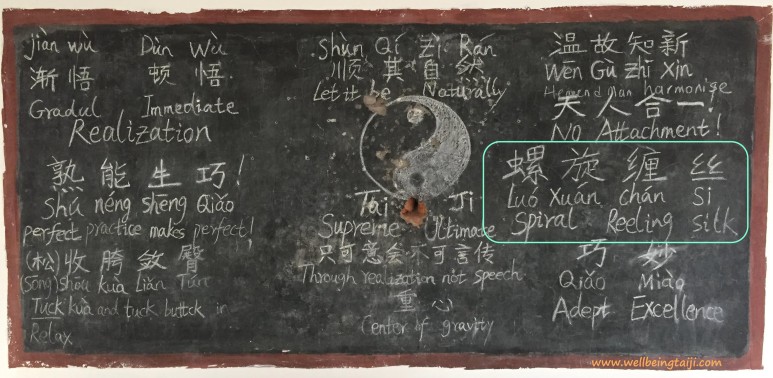 jiàn wù Dùn Wù
渐悟 顿悟
Gradul Immediate
Realization
熟能生巧!
Shú néng shēng Qiǎo
perfect practice makes perfect!
(松)收胯敛臀
(sōng) shōu kuà Liǎn Tún
Tuck kua and tuck buttck in
Relax
Shùn Qí Zì Rán
顺其自然
Let it be Naturally
Tai Ji
Supreme Ultimate
只可意会不可言传
Through realization not speech
重心
Center of gravity
温故知新
Wēn Gù zhī Xīn
Heaven and man harmonise
天人合一!
No Attachment!
螺旋缠丝
Luó Xuán chán Si
Spiral Reeling silk
巧妙
Qiǎo Miào
Adept Excellence
www.wellbeingtaiji.com